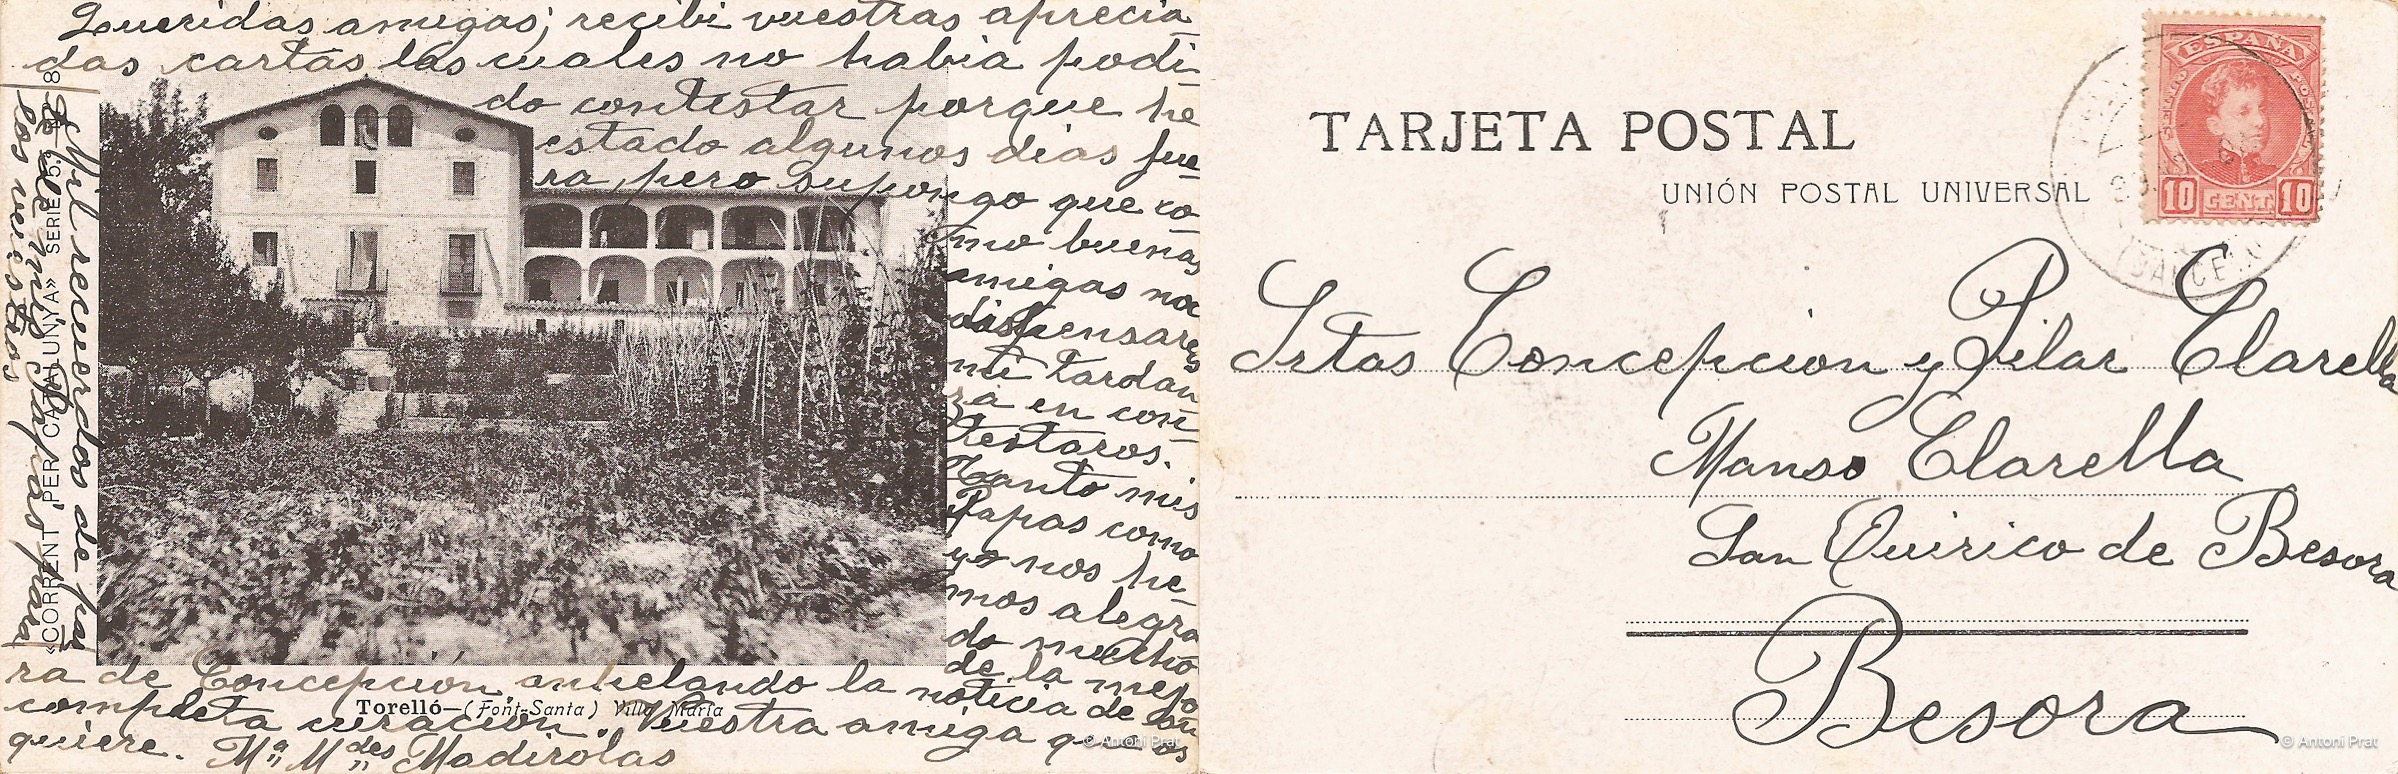 Queridas amigas; recibi vuestras aprecia
das cartas las cuales no habia podi-
do contestar porque he
estado algunos dias fue-
ra, pero supongo que co
mo buenas
amigas me
dispensareis
mi tardan
za en con
testaros.
Tanto mis
Papas como
yo nos he-
mos alegra
do mucho
de la mejo
ra de Concepcion anhelando la noticia de su
completa curación. Vuestra amiga que os
quiere. Mª Mdes Madirolas
Mil recuerdos de par
te de mis Papas para
los vuestros
«CORRENT PER CATALUNYA» SERIE 5.ª
8
Torelló—(Font-Santa) Villa María
© Antoni Prat
TARJETA POSTAL
UNIÓN POSTAL UNIVERSAL
ESPAÑA
10 CENT. 10
Srtas Concepcion y Pilar Clarella
Manso Clarella
San Quirico de Besora
Besora
© Antoni Prat